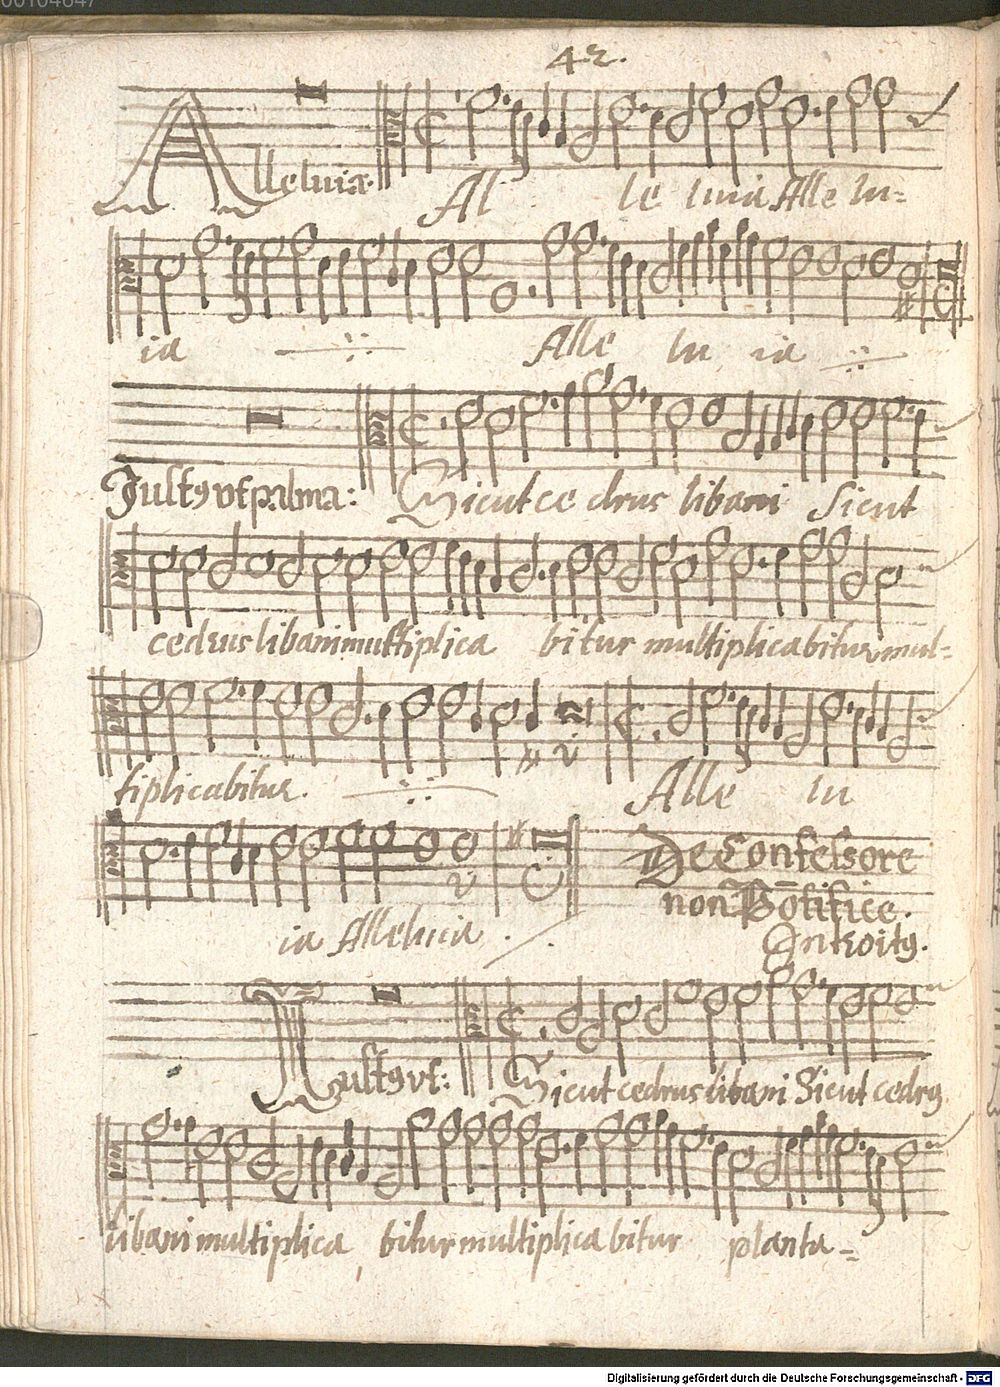 00104647
42.
Alleluia. Al le luia Alle lu-
ia Alle lu ia
Just9 vt palma: Sicut ce drus libani Sicut
cedrus libani multiplica bitur multiplicabitur mul-
tiplicabitur. Alle lu
ia Alleluia
De Confessore
non Põtifice.
Introit9.
Just9 vt: Sicut cedrus libani Sicut cedr9
libani multiplica bitur multiplica bitur planta-
Digitalisierung gefördert durch die Deutsche Forschungsgemeinschaft - DFG